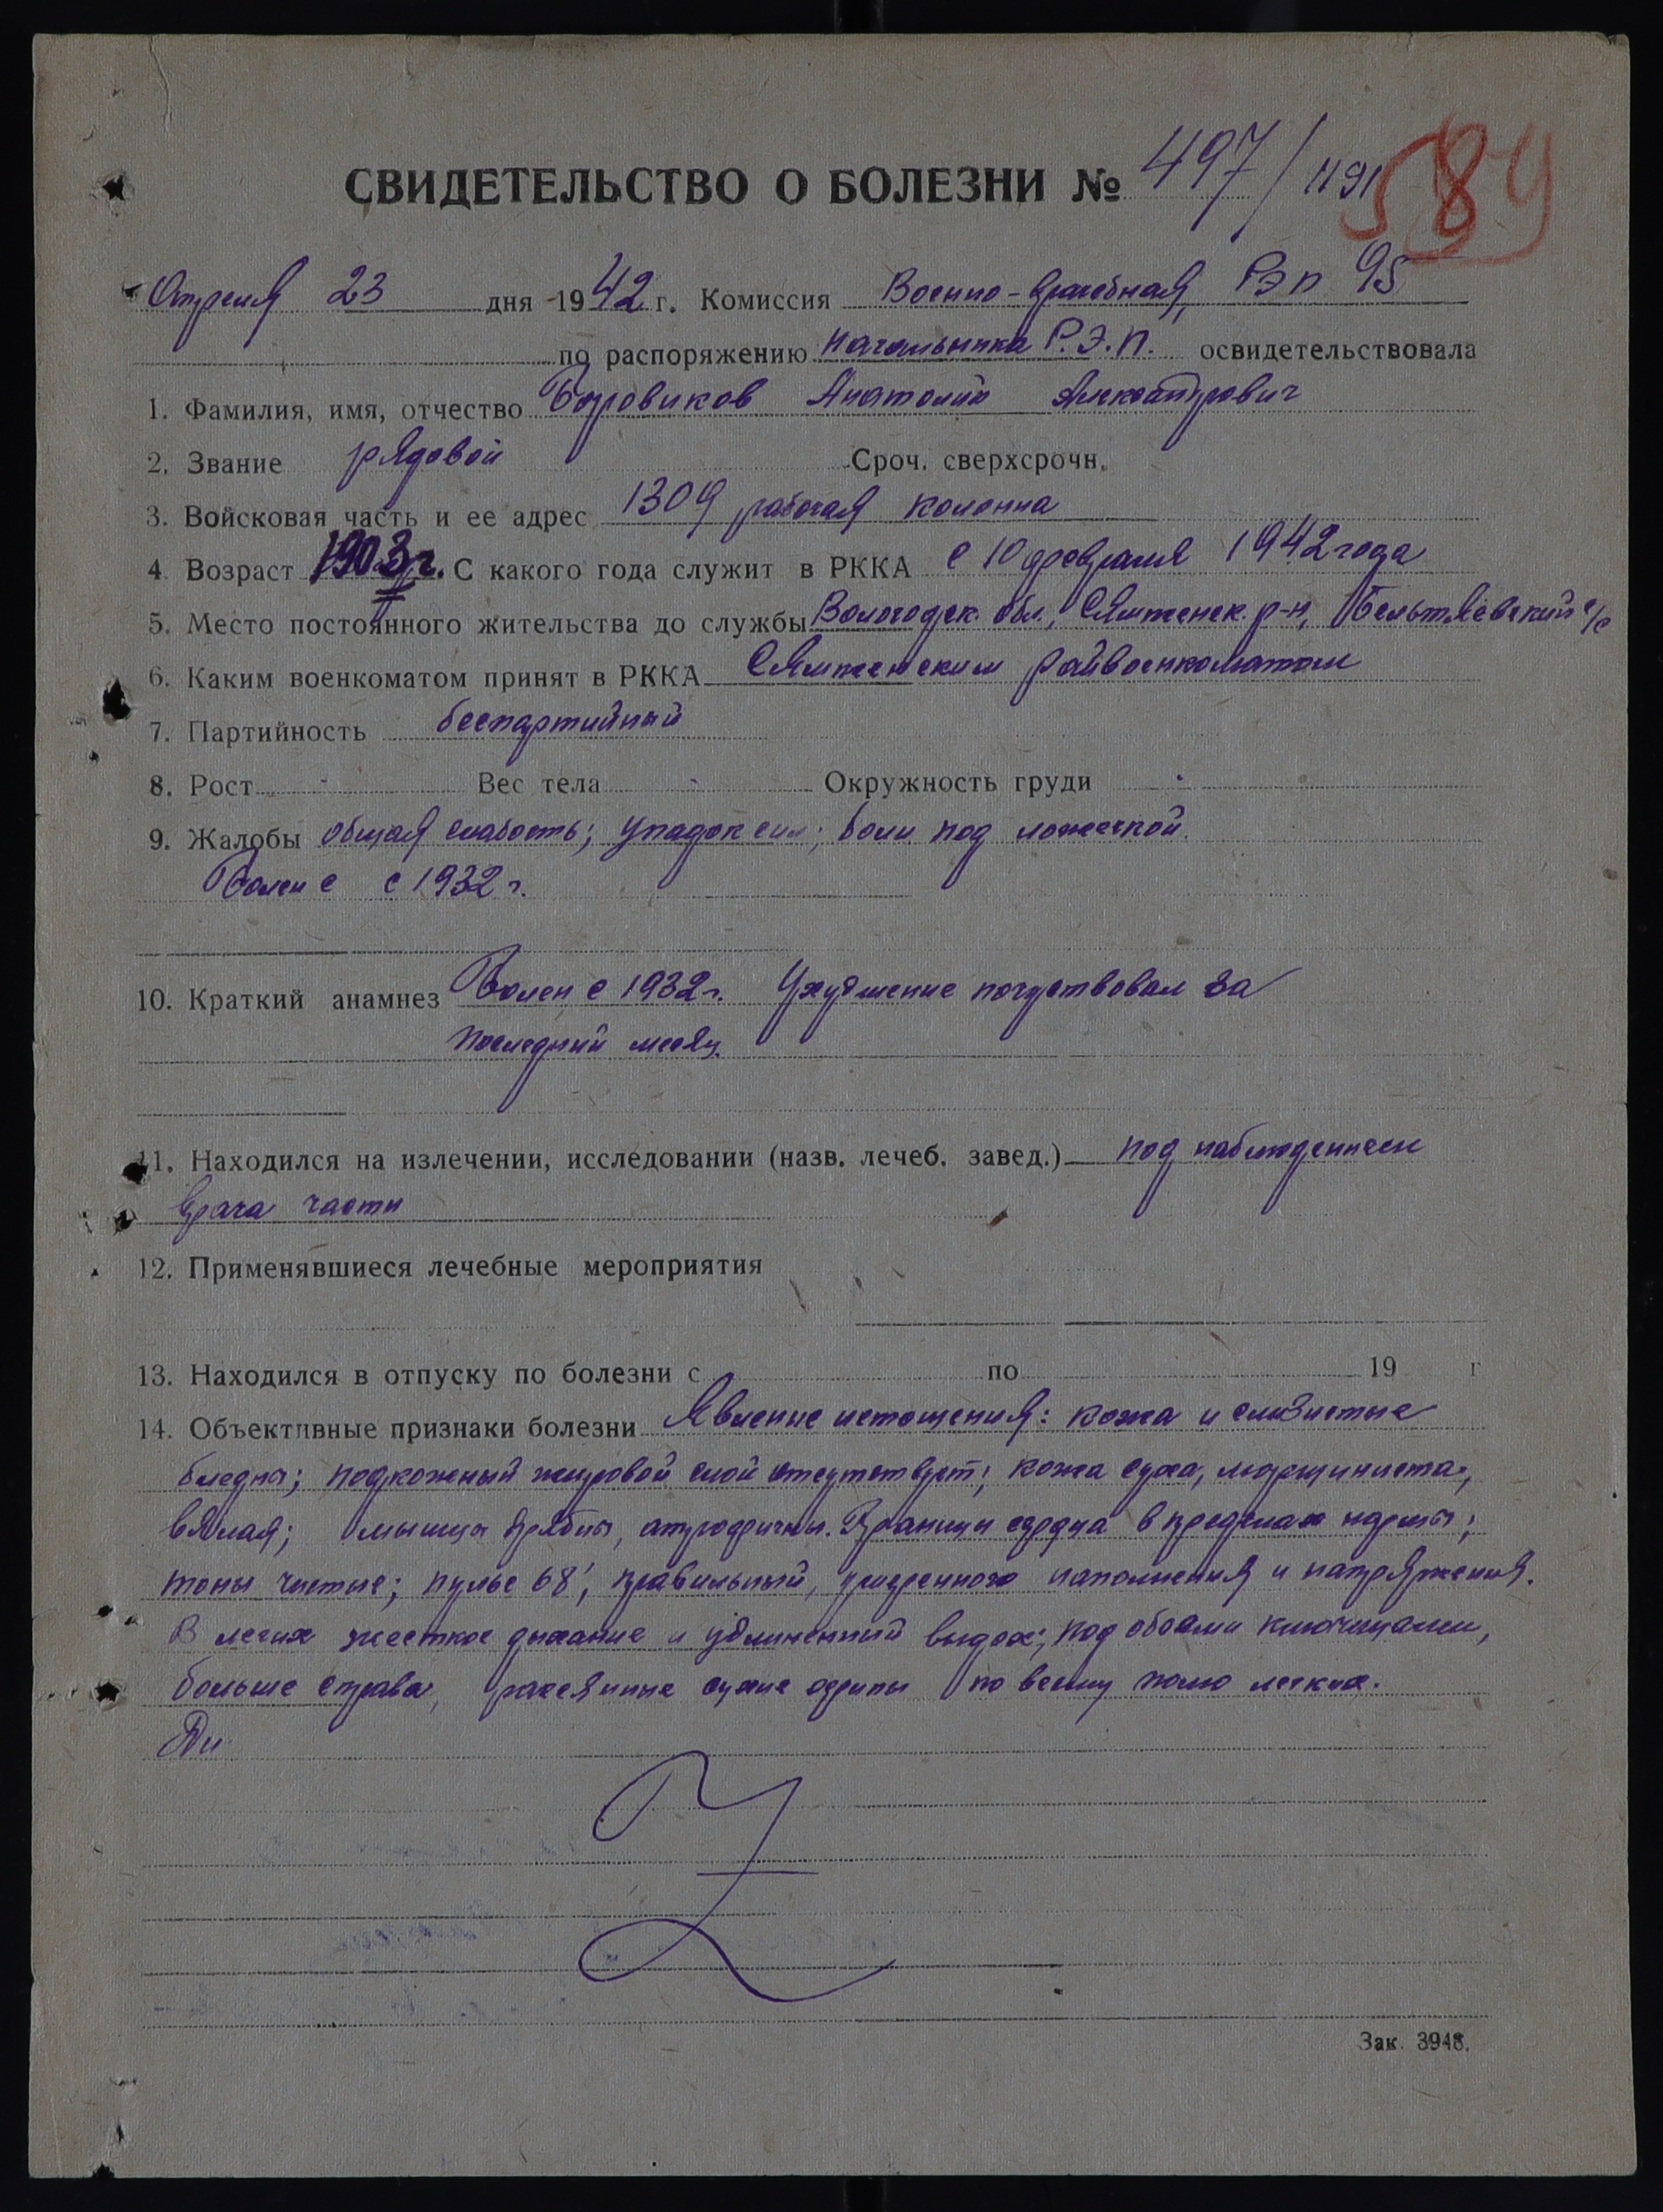 СВИДЕТЕЛЬСТВО О БОЛЕЗНИ № 497/1191
589
Апреля 23 дня 1942 г. Комиссия Военно-врачебная, РЭП 95
по распоряжению начальника Р.Э.П. освидетельствовала
1. Фамилия, имя, отчество Боровиков Анатолий Александрович
2. Звание рядовой Сроч. сверхсрочн.
3. Войсковая часть и ее адрес 1309 рабочая колонна
4. Возраст 1903 г. С какого года служит в РККА с 10 февраля 1942 года
5. Место постоянного жительства до службы Вологодск. обл., Сямженск. р-н, с/с
6. Каким военкоматом принят в РККА Сямженским райвоенкоматом
7. Партийность беспартийный
8. Рост - Вес тела - Окружность груди -
9. Жалобы общая слабость; упадок сил; боли под ложечкой.
Болен с с 1932 г.
10. Краткий анамнез Болен с 1932 г. Ухудшение почуствовал за
последний месяц.
11. Находился на излечении, исследовании (назв. лечеб. завед.) под наблюдением
врача части
12. Применявшиеся лечебные мероприятия
13. Находился в отпуску по болезни с по 19 г
14. Объективные признаки болезни Явление истощения: кожа и слизистые
бледны; подкожный жировой слой отсутствует; кожа суха, морщиниста,
вялая; мышцы дряблы, атрофичны. Границы сердца в пределах нормы;
тоны чистые; пульс 68', правильный, умеренного наполнения и напряжения.
В легких жесткое дыхание и удлиненный выдох; под обоями ключицами,
больше справа, рассеянные сухие хрипы по всему полю легких.
Зак. 3948.